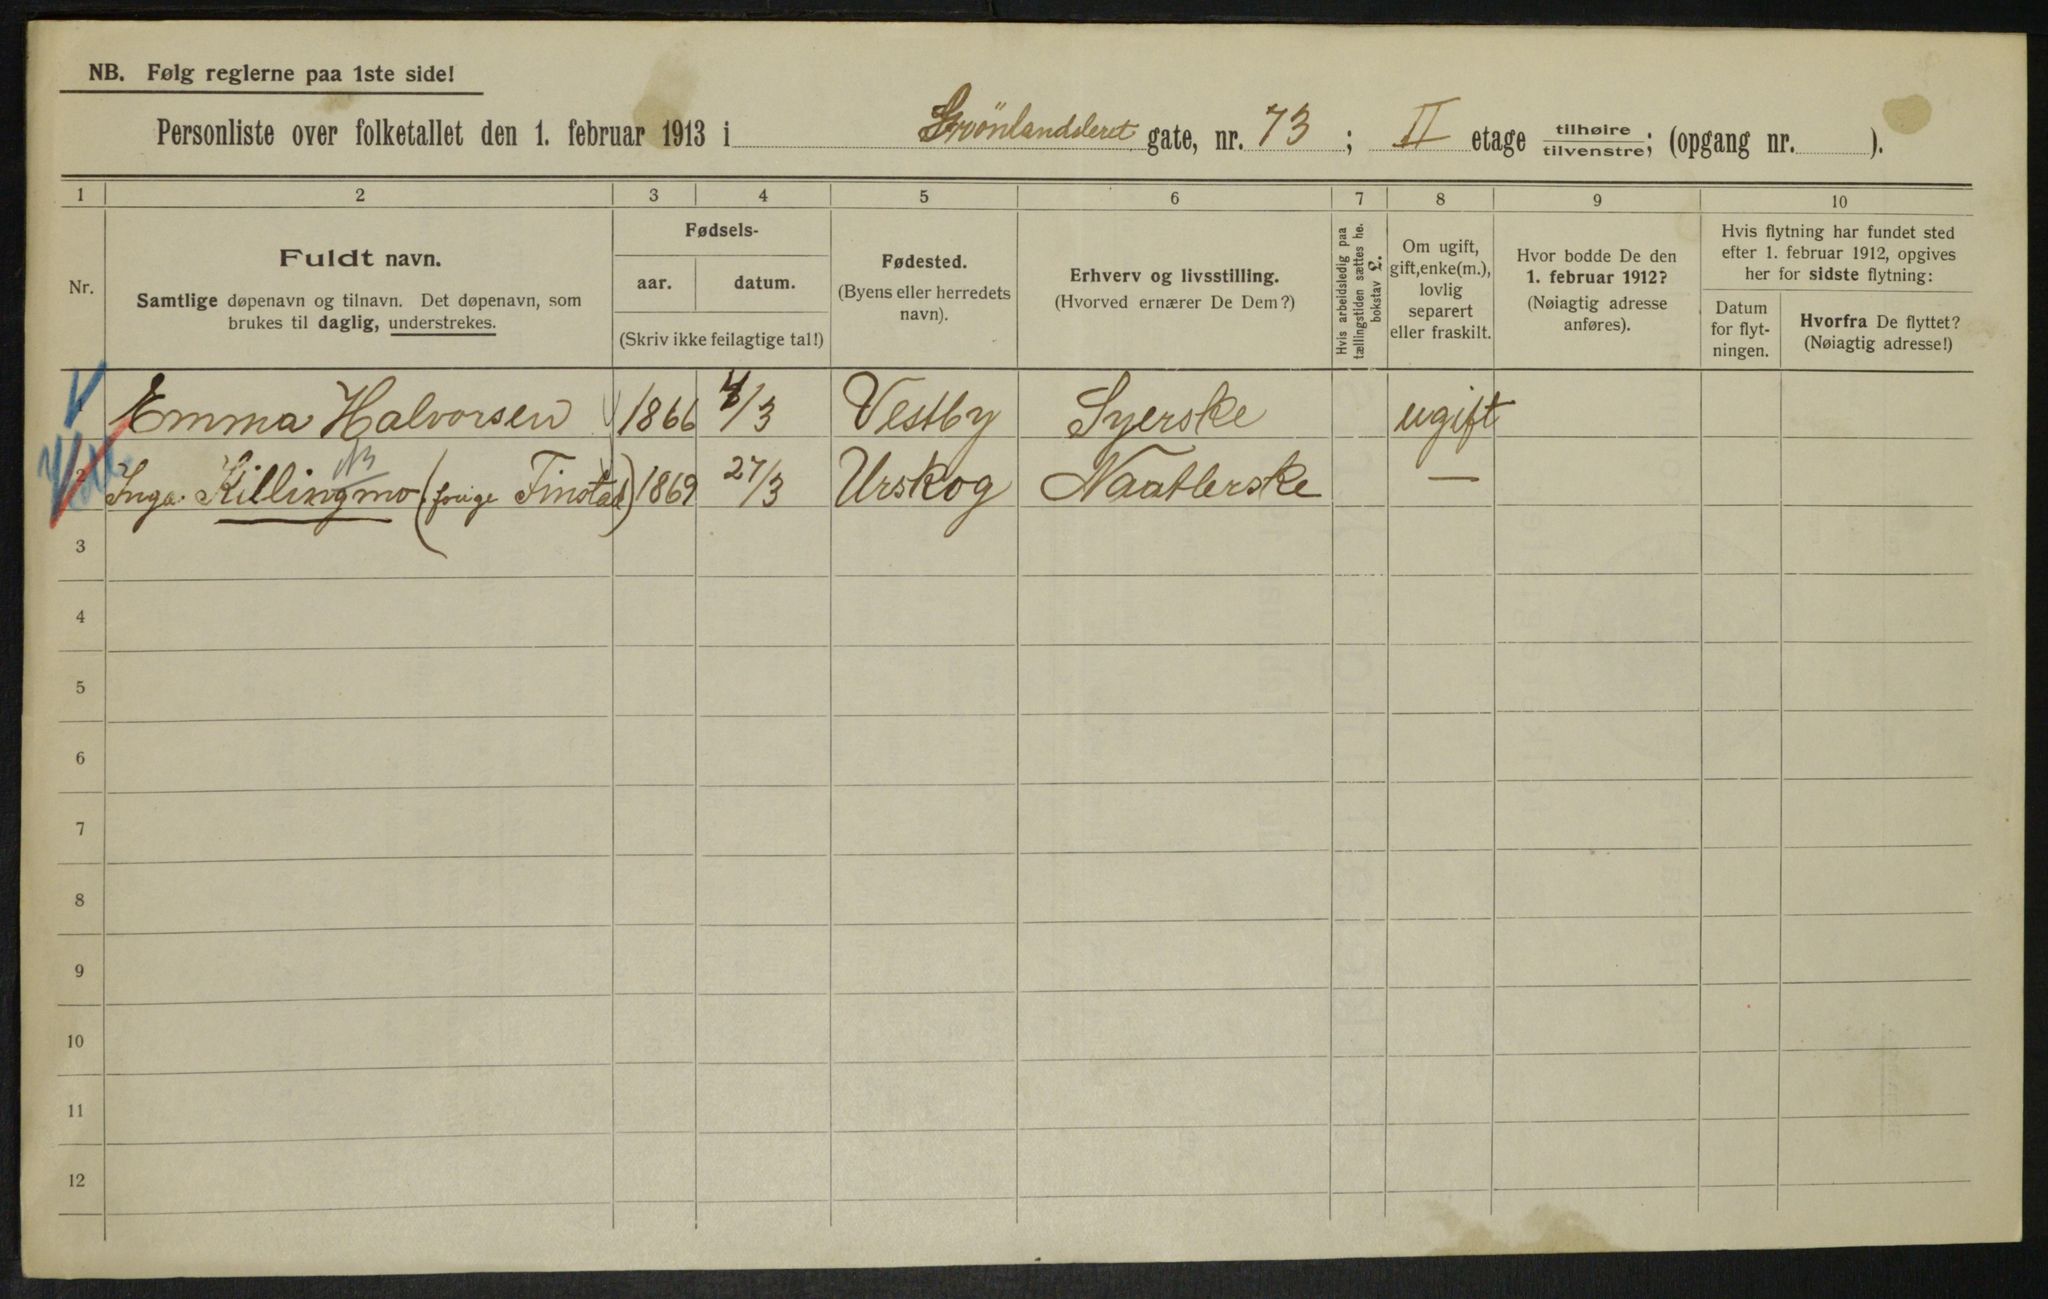 NB. Følg reglerne paa 1ste side!
Personliste over folketallet den 1. februar 1913 i Grönlandsleret gate, nr. 73; II etage tilhøire/tilvenstre; (opgang nr. ).
1 2 3 4 5 6 7 8 9 10
Nr.
Fuldt navn.
Samtlige døpenavn og tilnavn. Det døpenavn, som
brukes til daglig, understrekes.
Fødsels-
aar. datum.
(Skriv ikke feilagtige tal!)
Fødested.
(Byens eller herredets
navn).
Erhverv og livsstilling.
(Hvorved ernærer De Dem?)
Hvis arbeidsledig paa
tællingstiden sættes he.
bokstav L.
Om ugift,
gift, enke(m.),
lovlig
separert
eller fraskilt.
Hvor bodde De den
1. februar 1912?
(Nøiagtig adresse
anføres).
Hvis flytning har fundet sted
efter 1. februar 1912, opgives
her for sidste flytning:
Datum
for flyt-
ningen.
Hvorfra De flyttet?
(Nøiagtig adresse!)
1 Emma Halvorsen 1866 4/3 Vestby Syerske ugift
2 Inga Killingmo (forige Finstad) 1869 27/3 Urskog Naatlerske —
3
4
5
6
7
8
9
10
11
12